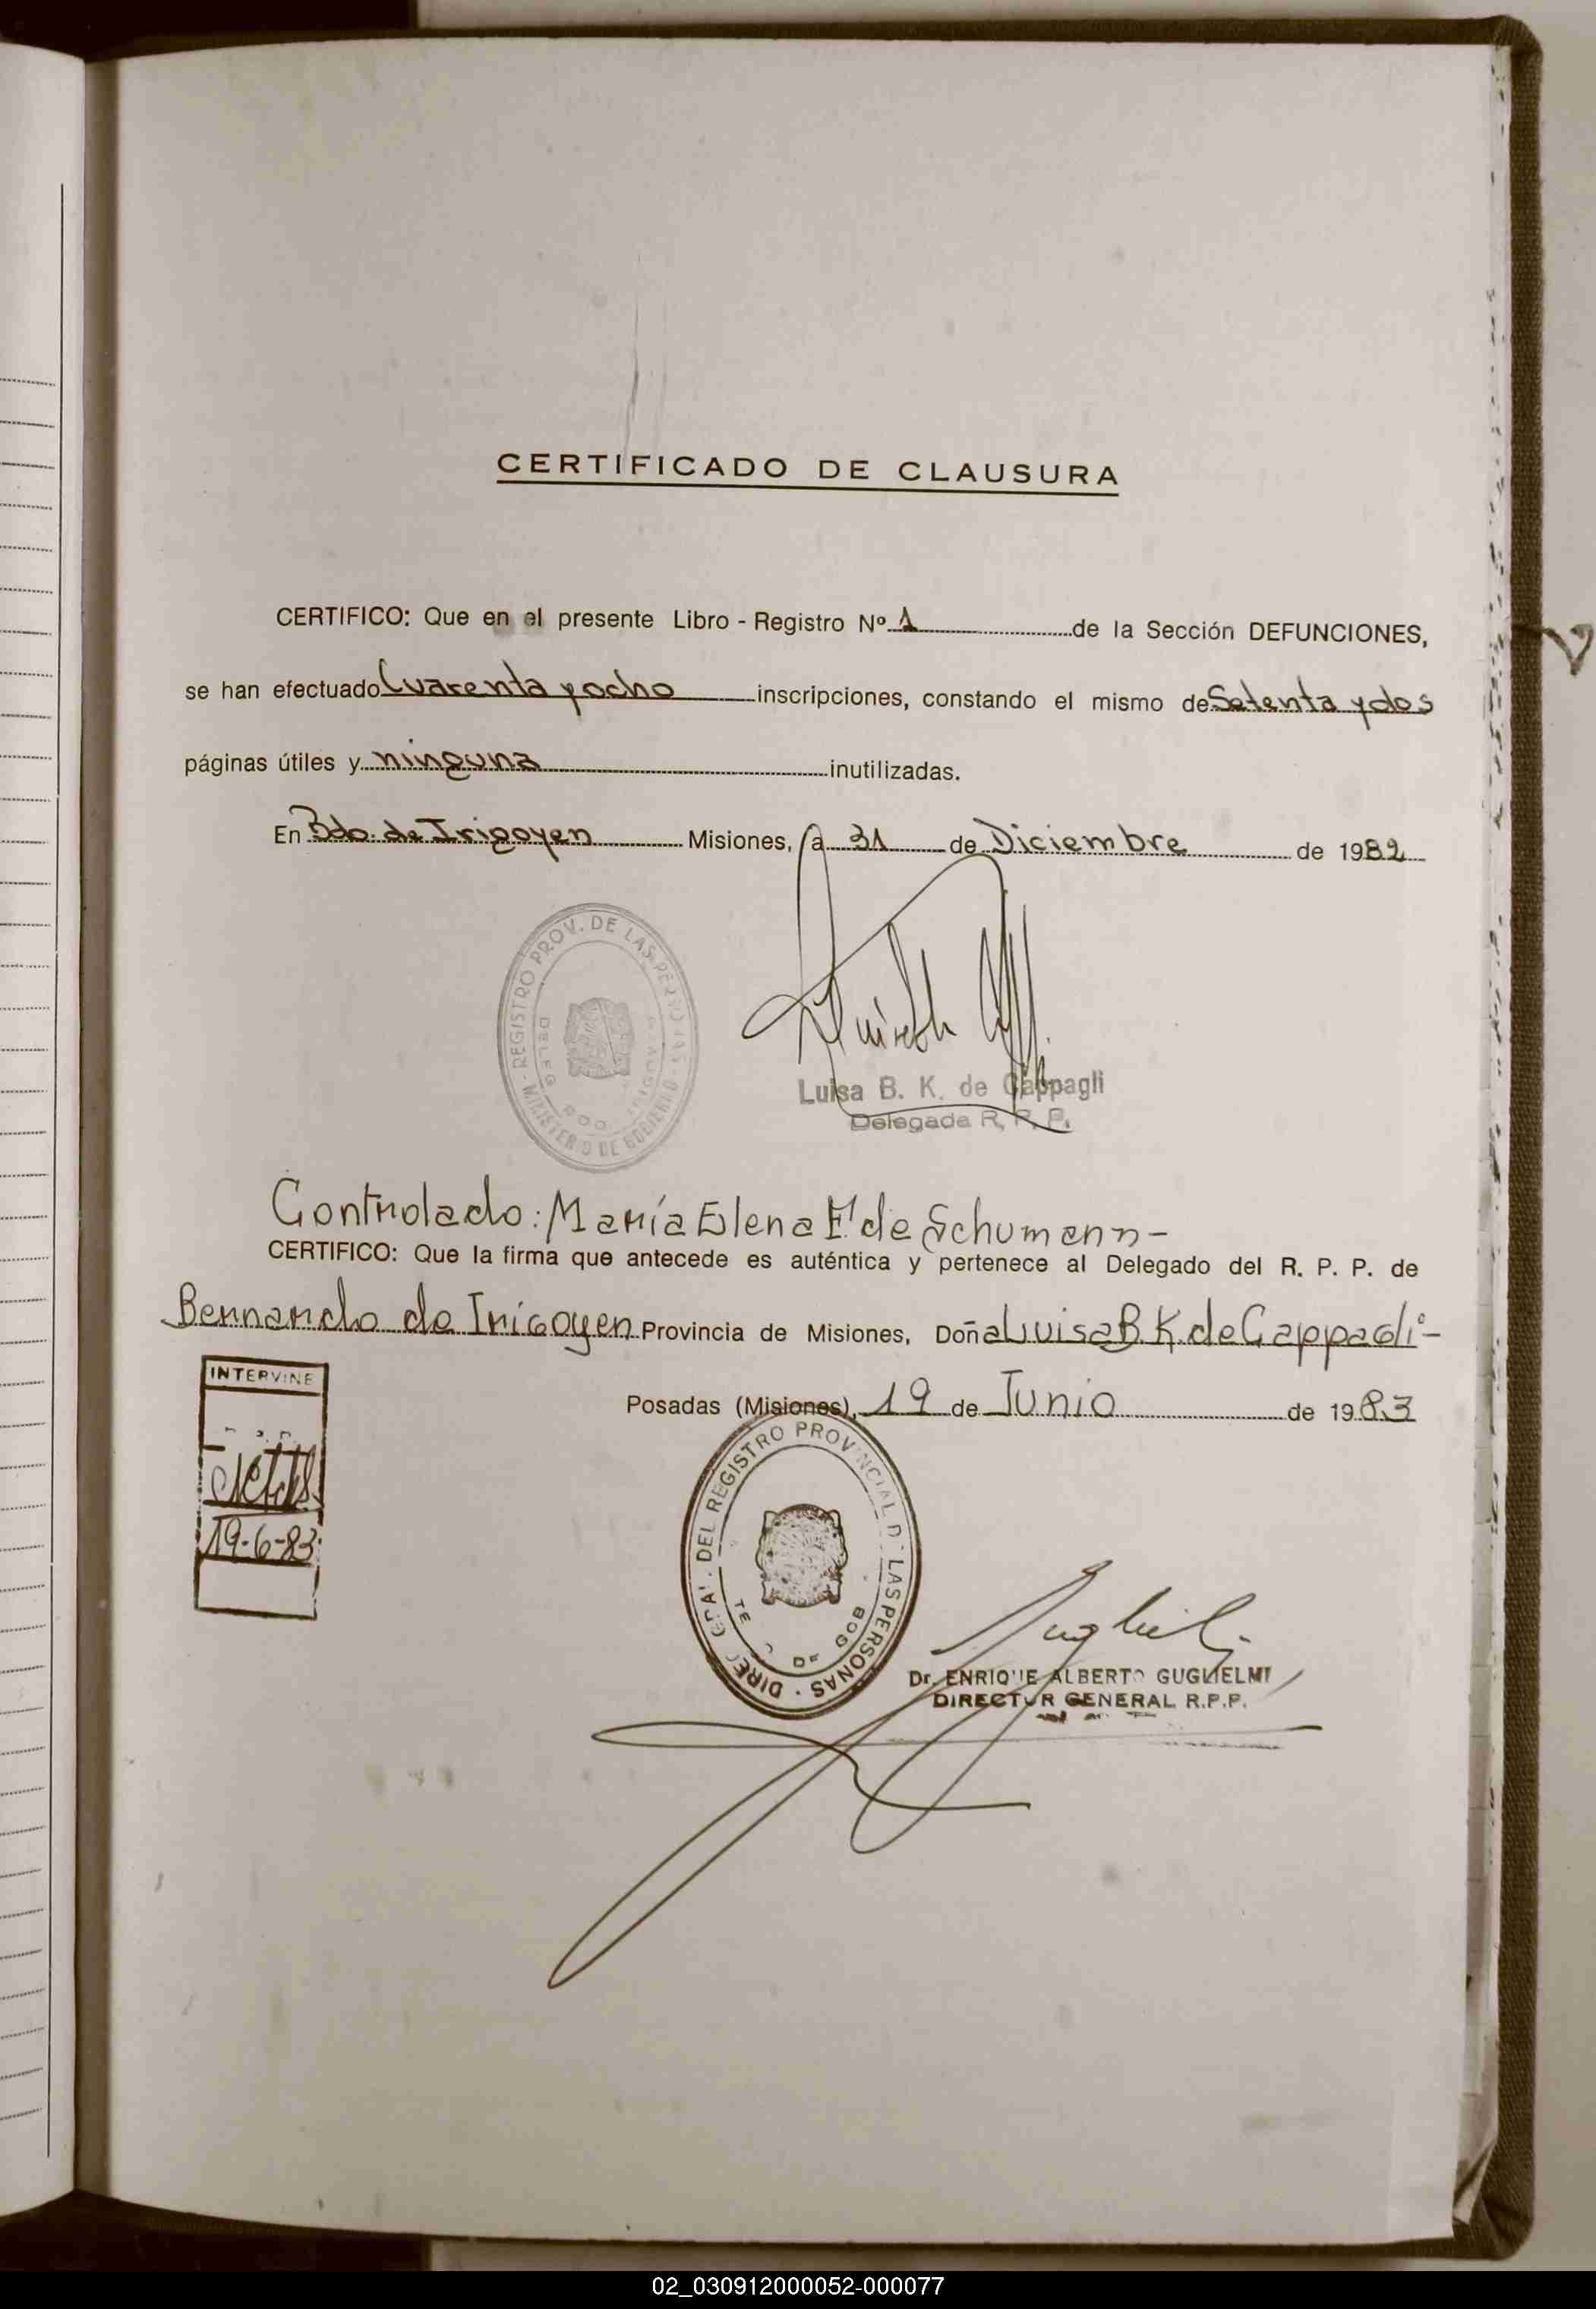 CERTIFICADO DE CLAUSURA
CERTIFICO: Que en el presente Libro - Registro Nº 1 de la Sección DEFUNCIONES,
se han efectuado Cuarenta y ocho inscripciones, constando el mismo de Setenta y dos
páginas útiles y ninguna inutilizadas.
En Bdo. de Irigoyen Misiones, a 31 de Diciembre de 1982
REGISTRO PROV. DE LAS PERSONAS
MINISTERIO DE GOBIERNO
Luisa B. K. de Cappagli
Delegada R. P. P.
Controlado: María Elena F. de Schumann-
CERTIFICO: Que la firma que antecede es auténtica y pertenece al Delegado del R. P. P. de
Bernardo de Irigoyen Provincia de Misiones, Doña Luisa B. K. de Cappagli-
INTERVINE
19-6-83
Posadas (Misiones), 19 de Junio de 1983
DEL REGISTRO PROVINCIAL DE LAS PERSONAS
Dr. ENRIQUE ALBERTO GUGLIELMI
DIRECTOR GENERAL R.P.P.
02_030912000052-000077